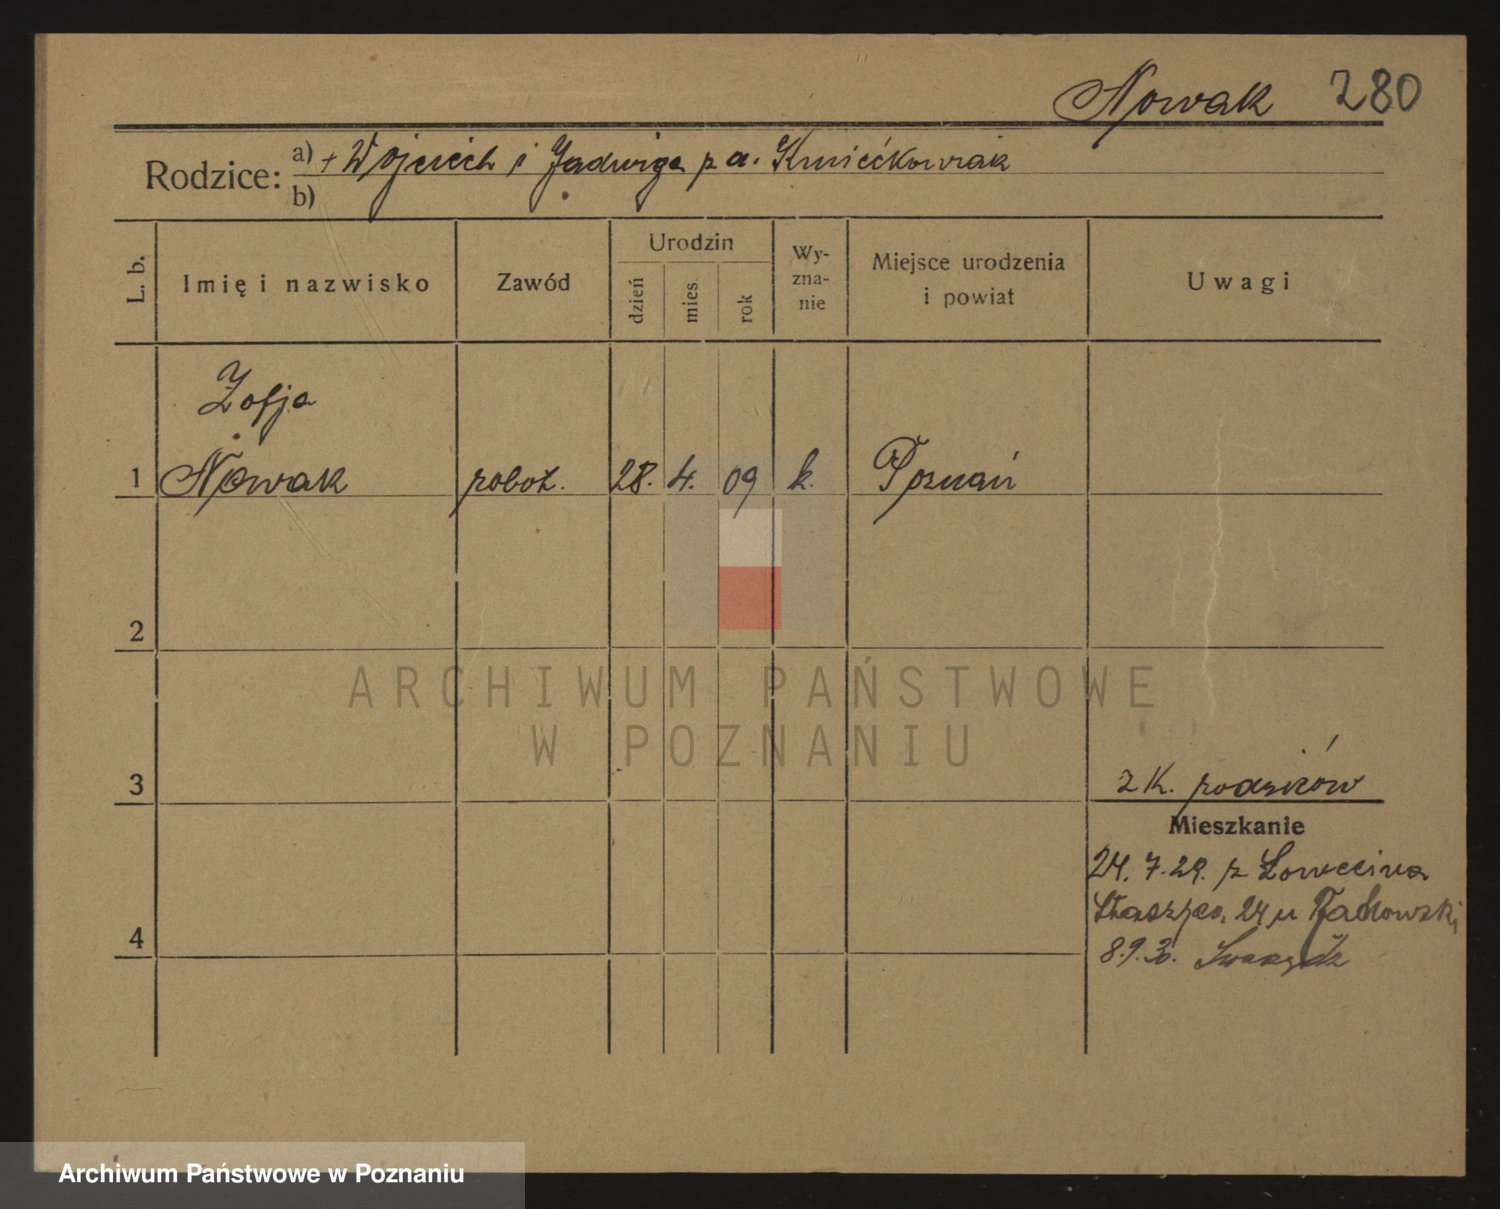 Nowak 280
Rodzice: a) + Wojciech i Jadwiga z d. Kmiećkowiak
b)
L. b. Imię i nazwisko Zawód Urodzin dzień mies. rok Wy-zna-nie Miejsce urodzenia i powiat Uwagi
Zofja
1 Nowak robot. 28. 4. 09 k. Poznań
2
3 z K. rodziców
Mieszkanie
24. 7. 29. z Łowęcina
Staszyca 24 u
4
8.9.30. Swarzędz
ARCHIWUM PAŃSTWOWE
W POZNANIU
Archiwum Państwowe w Poznaniu